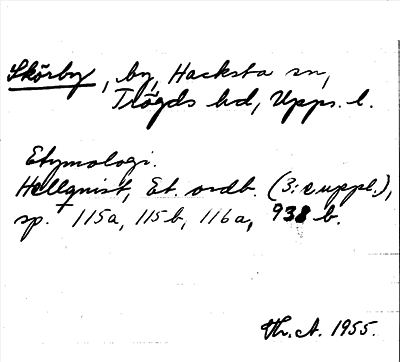 Skörby, by, Hacksta sn,
Trögds hd, Upps. l.
Etymologi.
Hellquist, Et. ordb. (3:e uppl.),
sp. 115a, 115b, 116a, 938 b.
Th. A. 1955.